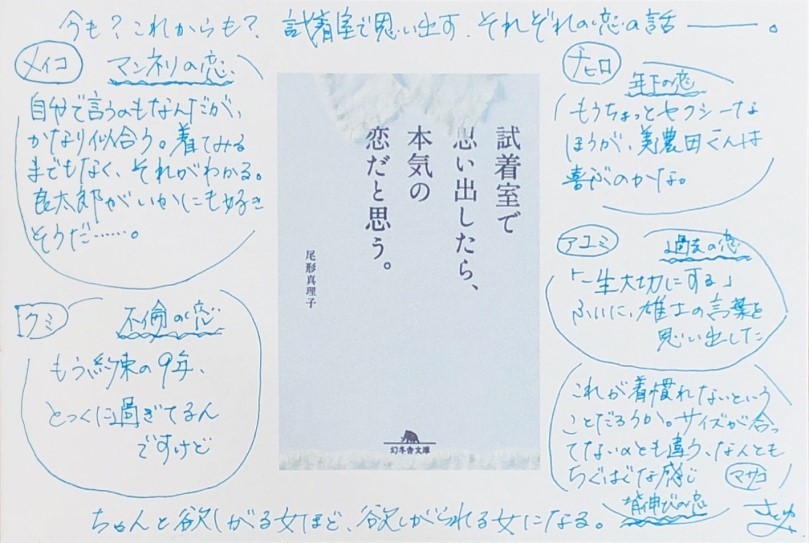 今も？これからも？ 試着室で思い出す、それぞれの恋の話――。
メイコ
マンネリの恋
自分で言うのもなんだが、
かなり似合う。着てみる
までもなく、それがわかる。
良太郎がいかにも好き
そうだ……。
クミ
不倫の恋
もう約束の9年、
とっくに過ぎてるん
ですけど
試着室で
思い出したら、
本気の
恋だと思う。
尾形真理子
幻冬舎文庫
チヒロ
年下の恋
もうちょっとセクシーな
ほうが、美濃田くんは
喜ぶのかな。
アユミ
過去の恋
「一生大切にする」
ふいに、雄士の言葉を
思い出した
これが着慣れないという
ことだろうか。サイズが合っ
てないのとも違う、なんとも
ちぐはぐな感じ
マサコ
背伸びの恋
ちゃんと欲しがる女ほど、欲しがられる女になる。